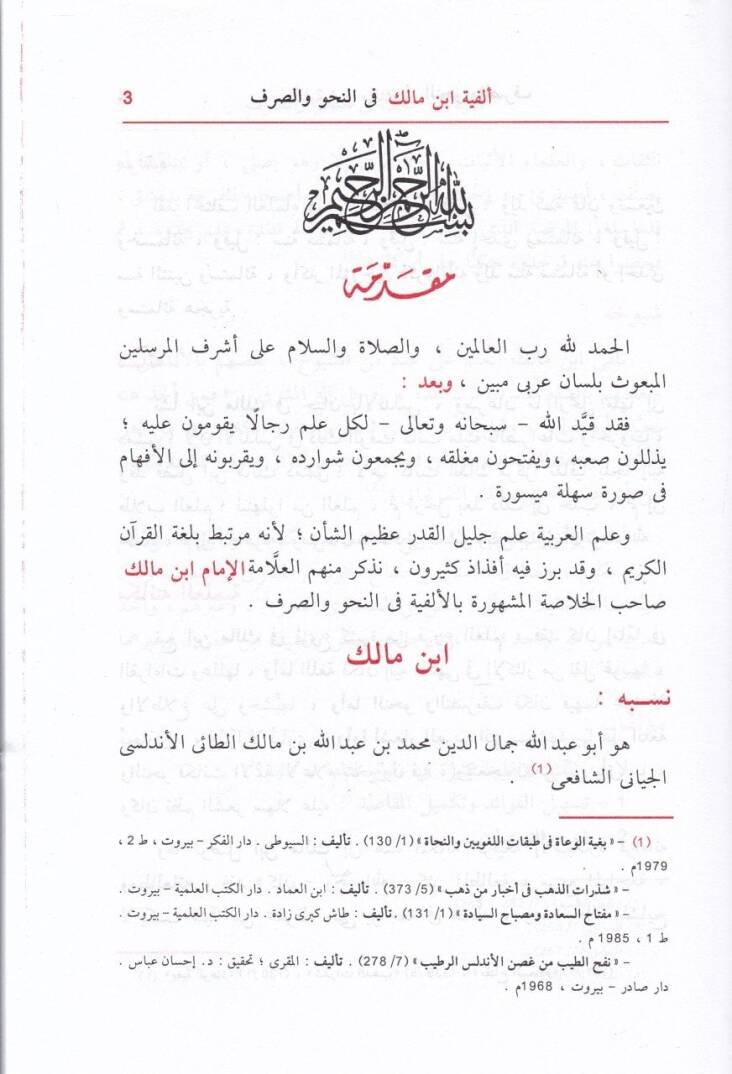 ألفية ابن مالك فى النحو والصرف 3
بسم الله الرحمن الرحيم
مقدمة
الحمد لله رب العالمين ، والصلاة والسلام على أشرف المرسلين
المبعوث بلسان عربى مبين ، وبعد :
فقد قيَّد الله – سبحانه وتعالى – لكل علم رجالًا يقومون عليه ؛
يذللون صعبه ،ويفتحون مغلقه ، ويجمعون شوارده ، ويقربونه إلى الأفهام
فى صورة سهلة ميسورة .
وعلم العربية علم جليل القدر عظيم الشأن ؛ لأنه مرتبط بلغة القرآن
الكريم ، وقد برز فيه أفذاذ كثيرون ، نذكر منهم العلَّامة الإمام ابن مالك
صاحب الخلاصة المشهورة بالألفية فى النحو والصرف .
ابن مالك
نسـبه :
هو أبو عبد الله جمال الدين محمد بن عبد الله بن مالك الطائى الأندلسى
الجيانى الشافعى(1) .
(1) – « بغية الوعاة فى طبقات اللغويين والنحاة » (1/ 130) . تأليف : السيوطى . دار الفكر – بيروت ، ط 2 ،
1979م .
– « شذرات الذهب فى أخبار من ذهب » (5/ 373) . تأليف : ابن العماد . دار الكتب العلمية – بيروت .
– « مفتاح السعادة ومصباح السيادة » (1/ 131) .تأليف : طاش كبرى زادة . دار الكتب العلمية – بيروت .
ط 1 ، 1985 م .
– « نفح الطيب من غصن الأندلس الرطيب » (7/ 278) . تأليف : المقرى ؛ تحقيق : د. إحسان عباس .
دار صادر – بيروت ، 1968م .